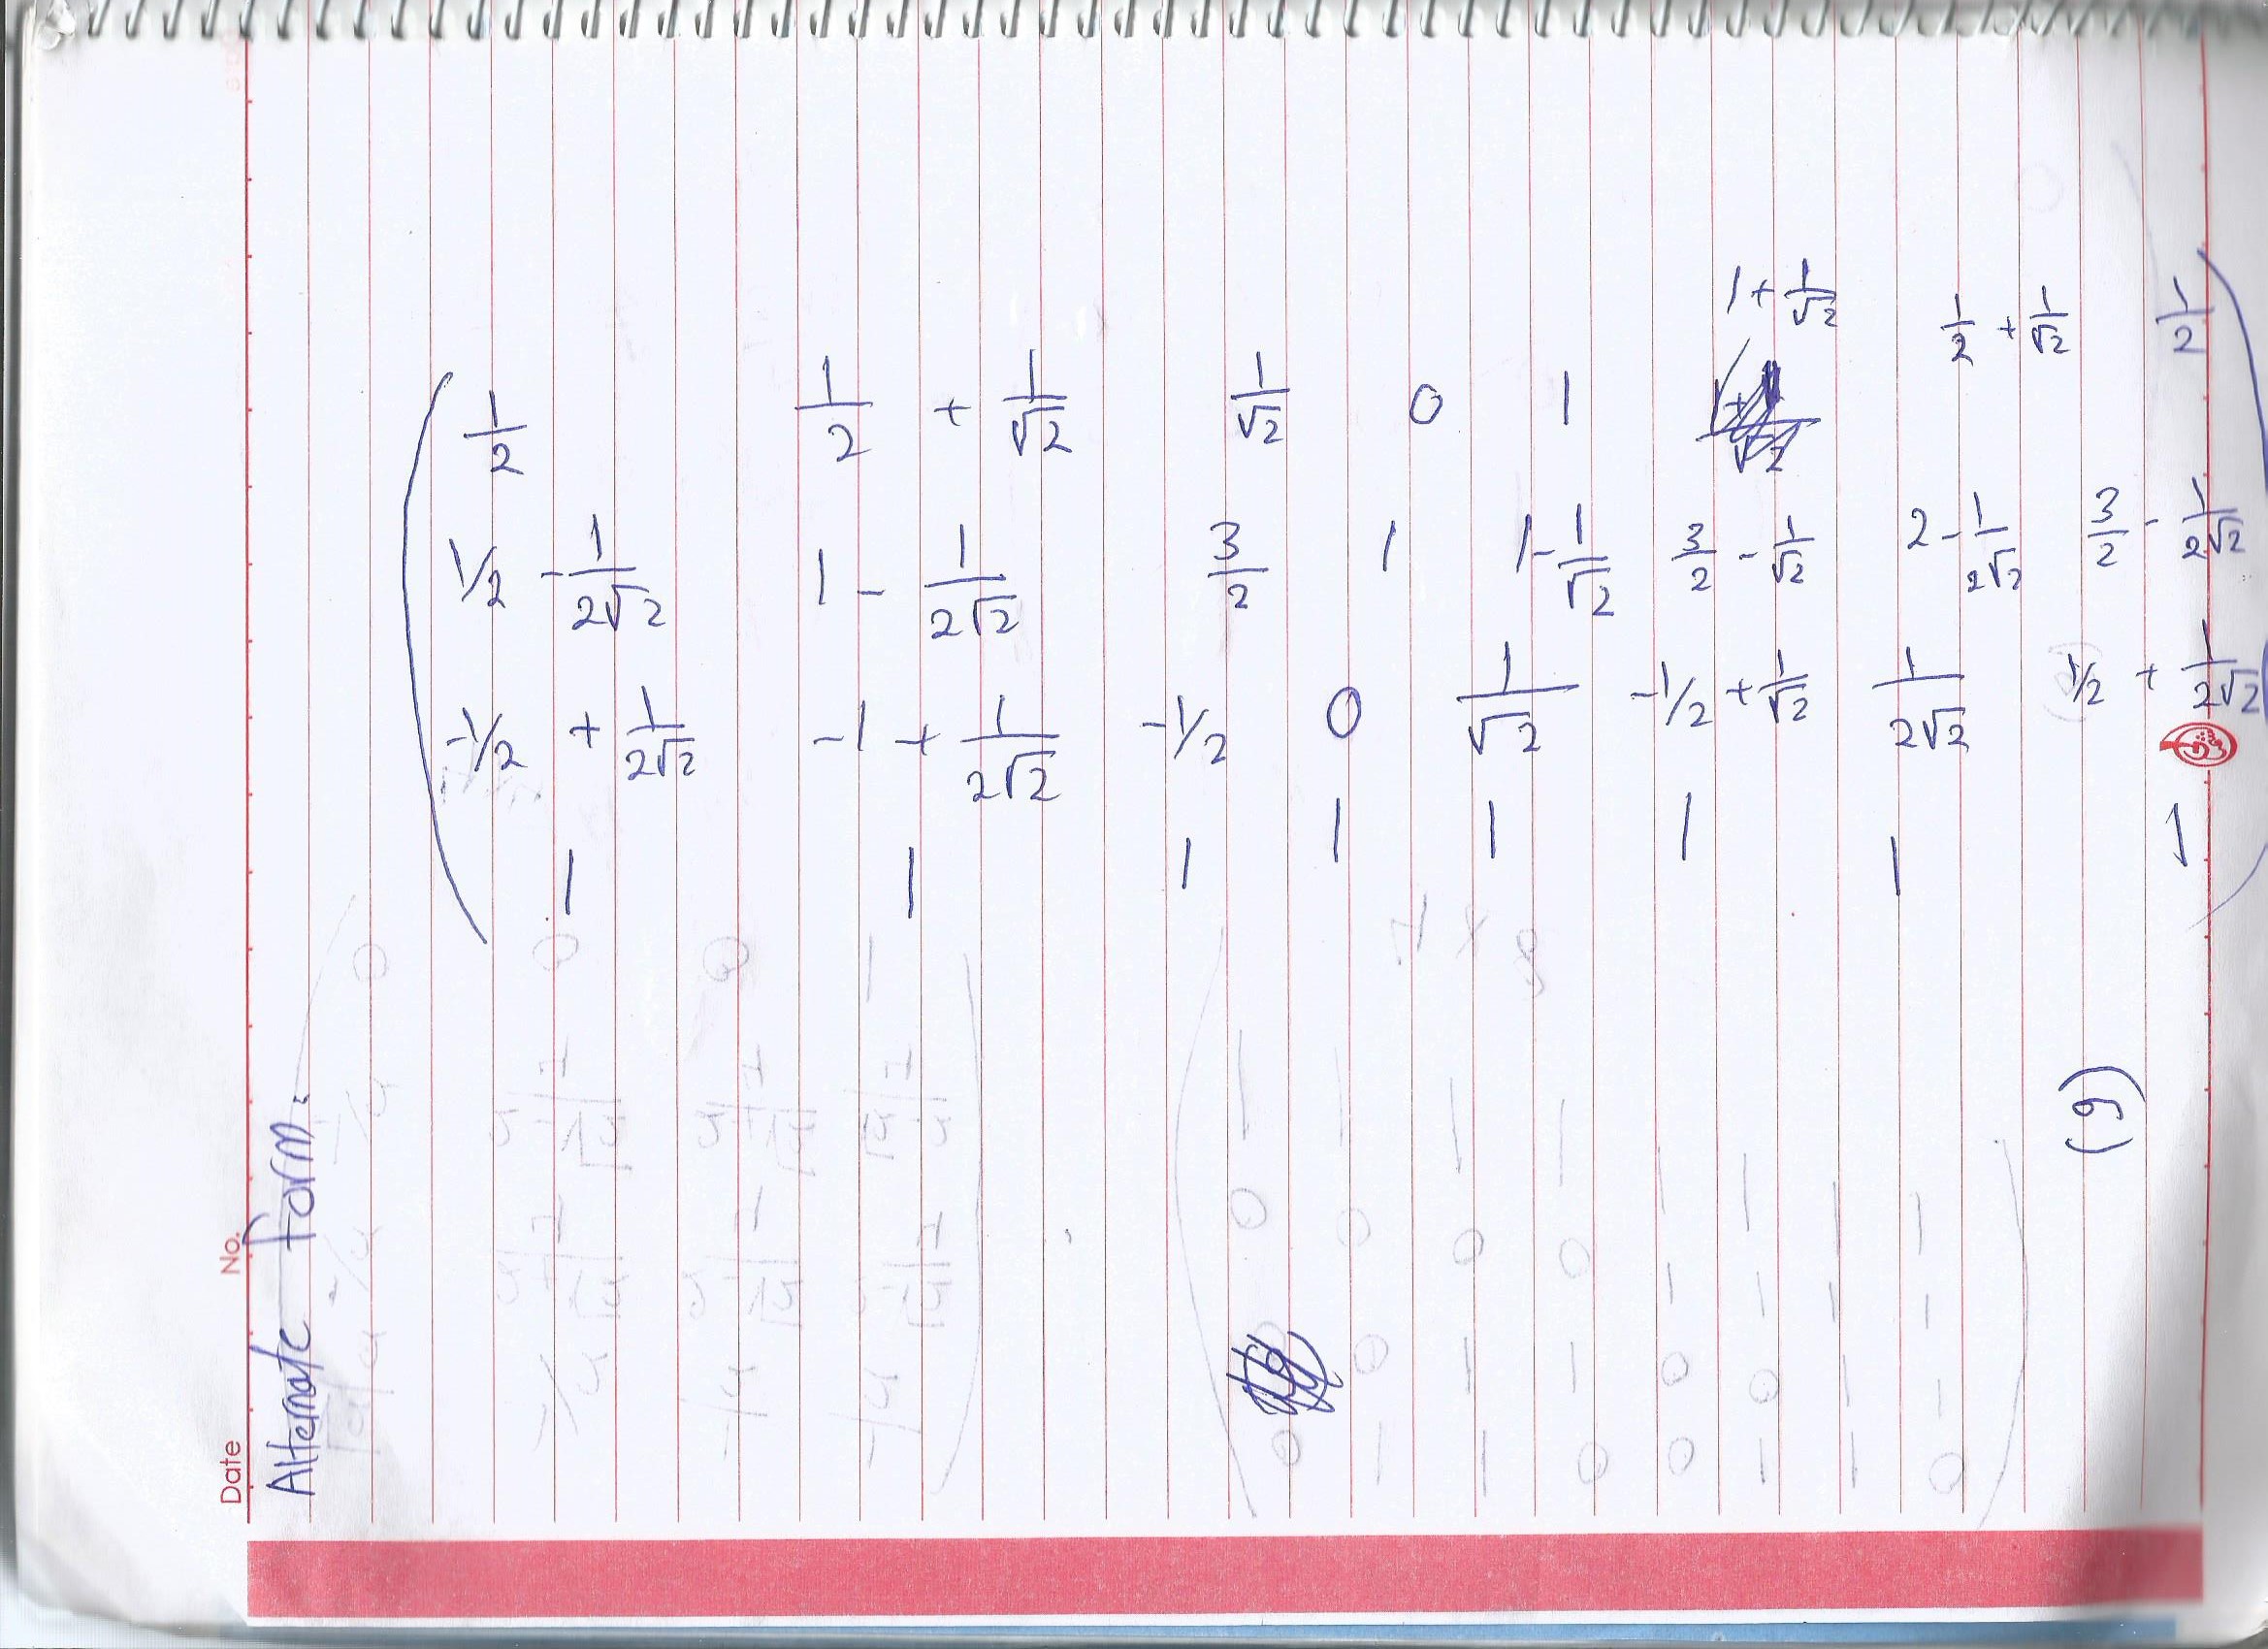 Date No.
Alternate Form.
1/2 1/2 + 1/√2 1/√2 0 1 1 + 1/√2 1/2 + 1/√2 1/2
1/2 - 1/2√2 1 - 1/2√2 3/2 1 1 - 1/√2 3/2 - 1/√2 2 - 1/2√2 3/2 - 1/2√2
-1/2 + 1/2√2 -1 + 1/2√2 -1/2 0 1/√2 -1/2 + 1/√2 1/2√2 1/2 + 1/2√2
1 1 1 1 1 1 1 1
(9)